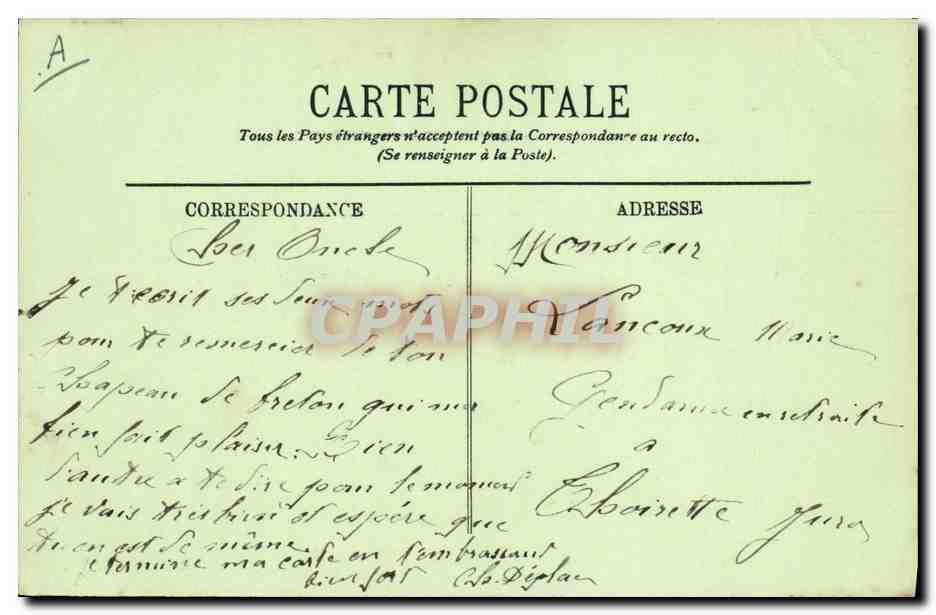 A
CARTE POSTALE
Tous les Pays étrangers n'acceptent pas la Correspondance au recto.
(Se renseigner à la Poste).
CORRESPONDANCE
Cher Oncle
Je t'ecrit ses deux mots
pour te remercier de ton
chapeau de breton qui ma
bien fait plaisir. Rien
d'autre a te dire pour le moment
je vais très bien et espère que
tu en est de même.
je termine ma carte en t'embrassant
bien fort Ch.
ADRESSE
Monsieur
Marie
Gendarme en retraite
à
Thoirette Jura
CPAPHIL